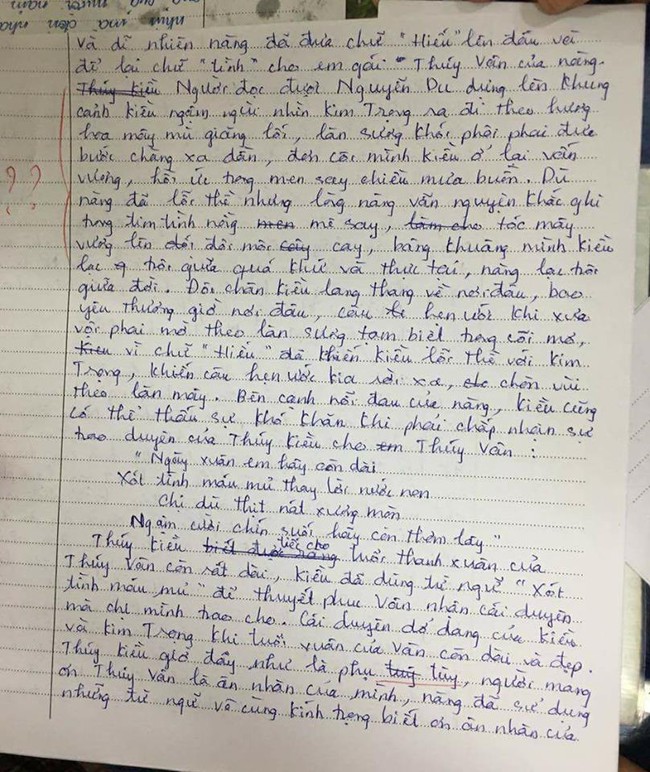 và dĩ nhiên nàng đã đưa chữ "Hiếu" lên đầu với
để lại chữ "tình" cho em gái - Thúy Vân của nàng.
Thúy Kiều Người đọc được Nguyễn Du dựng lên khung
cảnh Kiều ngậm ngùi nhìn Kim Trọng ra đi theo hương
hoa mây mù giăng lối, làn sương khói phôi phai đưa
bước chàng xa dần, đơn côi mình Kiều ở lại vấn
vương, hồi ức trong men say chiều mưa buồn. Dù
nàng đã lỗi thề nhưng lòng nàng vẫn nguyên khắc ghi
trong tim tình nồng men mê say, làm cho tóc mây
vương lên đôi môi cay, bâng khuâng mình Kiều
lạc trôi giữa quá khứ và thực tại, nàng lạc trôi
giữa đời. Đôi chân Kiều lang thang về nơi đâu, bao
yêu thương giờ nơi đâu, câu hẹn ước khi xưa
vội phai mờ theo làn sương tan biến trong cõi mơ,
Kiều vì chữ "Hiếu" đã khiến Kiều lỗi thề với Kim
Trọng, khiến câu hẹn ước kia rời xa, chôn vùi
theo làn mây. Bên cạnh nỗi đau của nàng, Kiều cũng
có thể thấu sự khó khăn khi phải chấp nhận sự
trao duyên của Thúy Kiều cho em Thúy Vân :
"Ngày xuân em hãy còn dài
Xót tình máu mủ thay lời nước non
Chị dù thịt nát xương mòn
Ngậm cười chín suối hãy còn thơm lây"
Thúy Kiều biết được rằng tiếc cho tuổi thanh xuân của
Thúy Vân còn rất dài, Kiều đã dùng từ ngữ "Xót
tình máu mủ" để thuyết phục Vân nhận cái duyên
mà chị mình trao cho. Cái duyên dở dang của Kiều
và Kim Trọng khi tuổi xuân của Vân còn dài và đẹp.
Thúy Kiều giờ đây như là phụ tùy, người mang
ơn Thúy Vân là ân nhân của mình, nàng đã sử dụng
những từ ngữ vô cùng kính trọng biết ơn ân nhân của